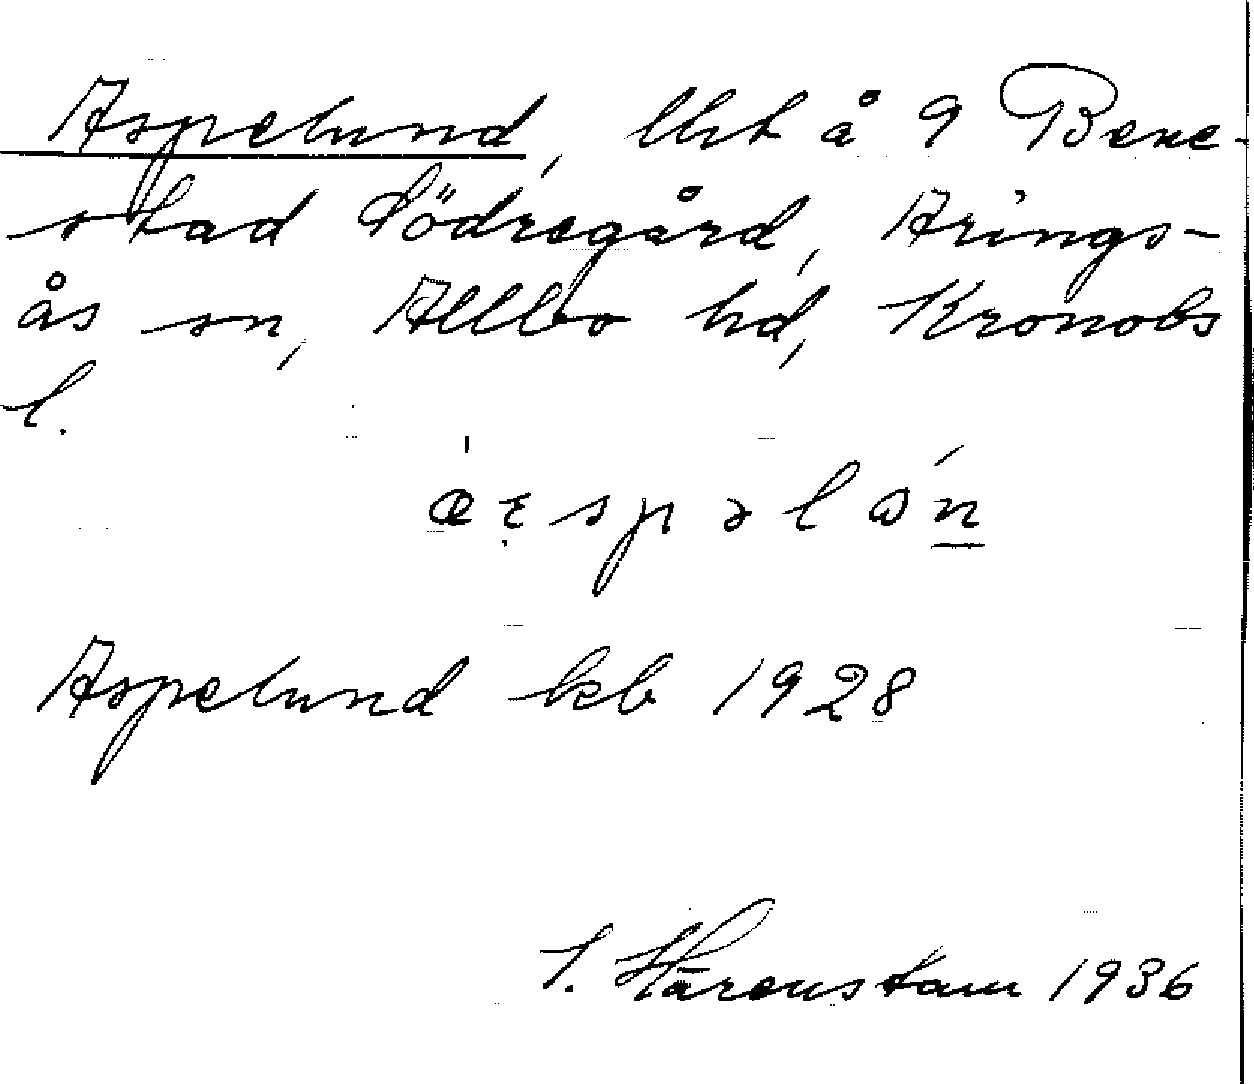 Aspelund, lht å 9 Bene-
stad Södregård, Arings-
ås sn, Allbo hd, Kronobs
l.
Aspelund kb 1928
Härenstam 1936